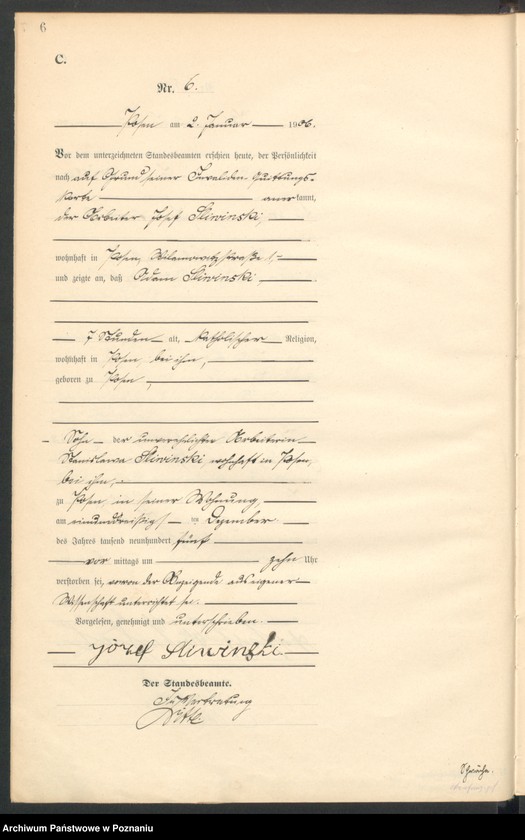 6
C.
Nr. 6.
Posen am 2. Januar 1906.
Vor dem unterzeichneten Standesbeamten erschien heute, der Persönlichkeit
nach auf Grund seiner Invaliden-Quittungs-
karte anerkannt,
der Arbeiter Josef Sliwinski,
wohnhaft in Posen,
und zeigte an, daß Adam Sliwinski
7 Stunden alt, katholischer Religion,
wohnhaft in Posen bei ihm,
geboren zu Posen,
Sohn der unverehelichten Arbeiterin
Stanislawa Sliwinski, wohnhaft in Posen,
bei ihm,
zu Posen in seiner Wohnung,
am einunddreißigst en Dezember
des Jahres tausend neunhundert fünf
vor mittags um zehn Uhr
verstorben sei, wovon der Anzeigende aus eigener
Wissenschaft unterrichtet sei.
Vorgelesen, genehmigt und unterschrieben.
Józef Sliwinski
Der Standesbeamte.
In Vertretung
Archiwum Państwowe w Poznaniu